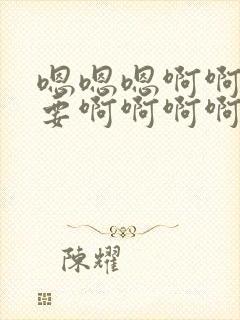 嗯嗯嗯啊啊
要啊啊啊啊
陳耀